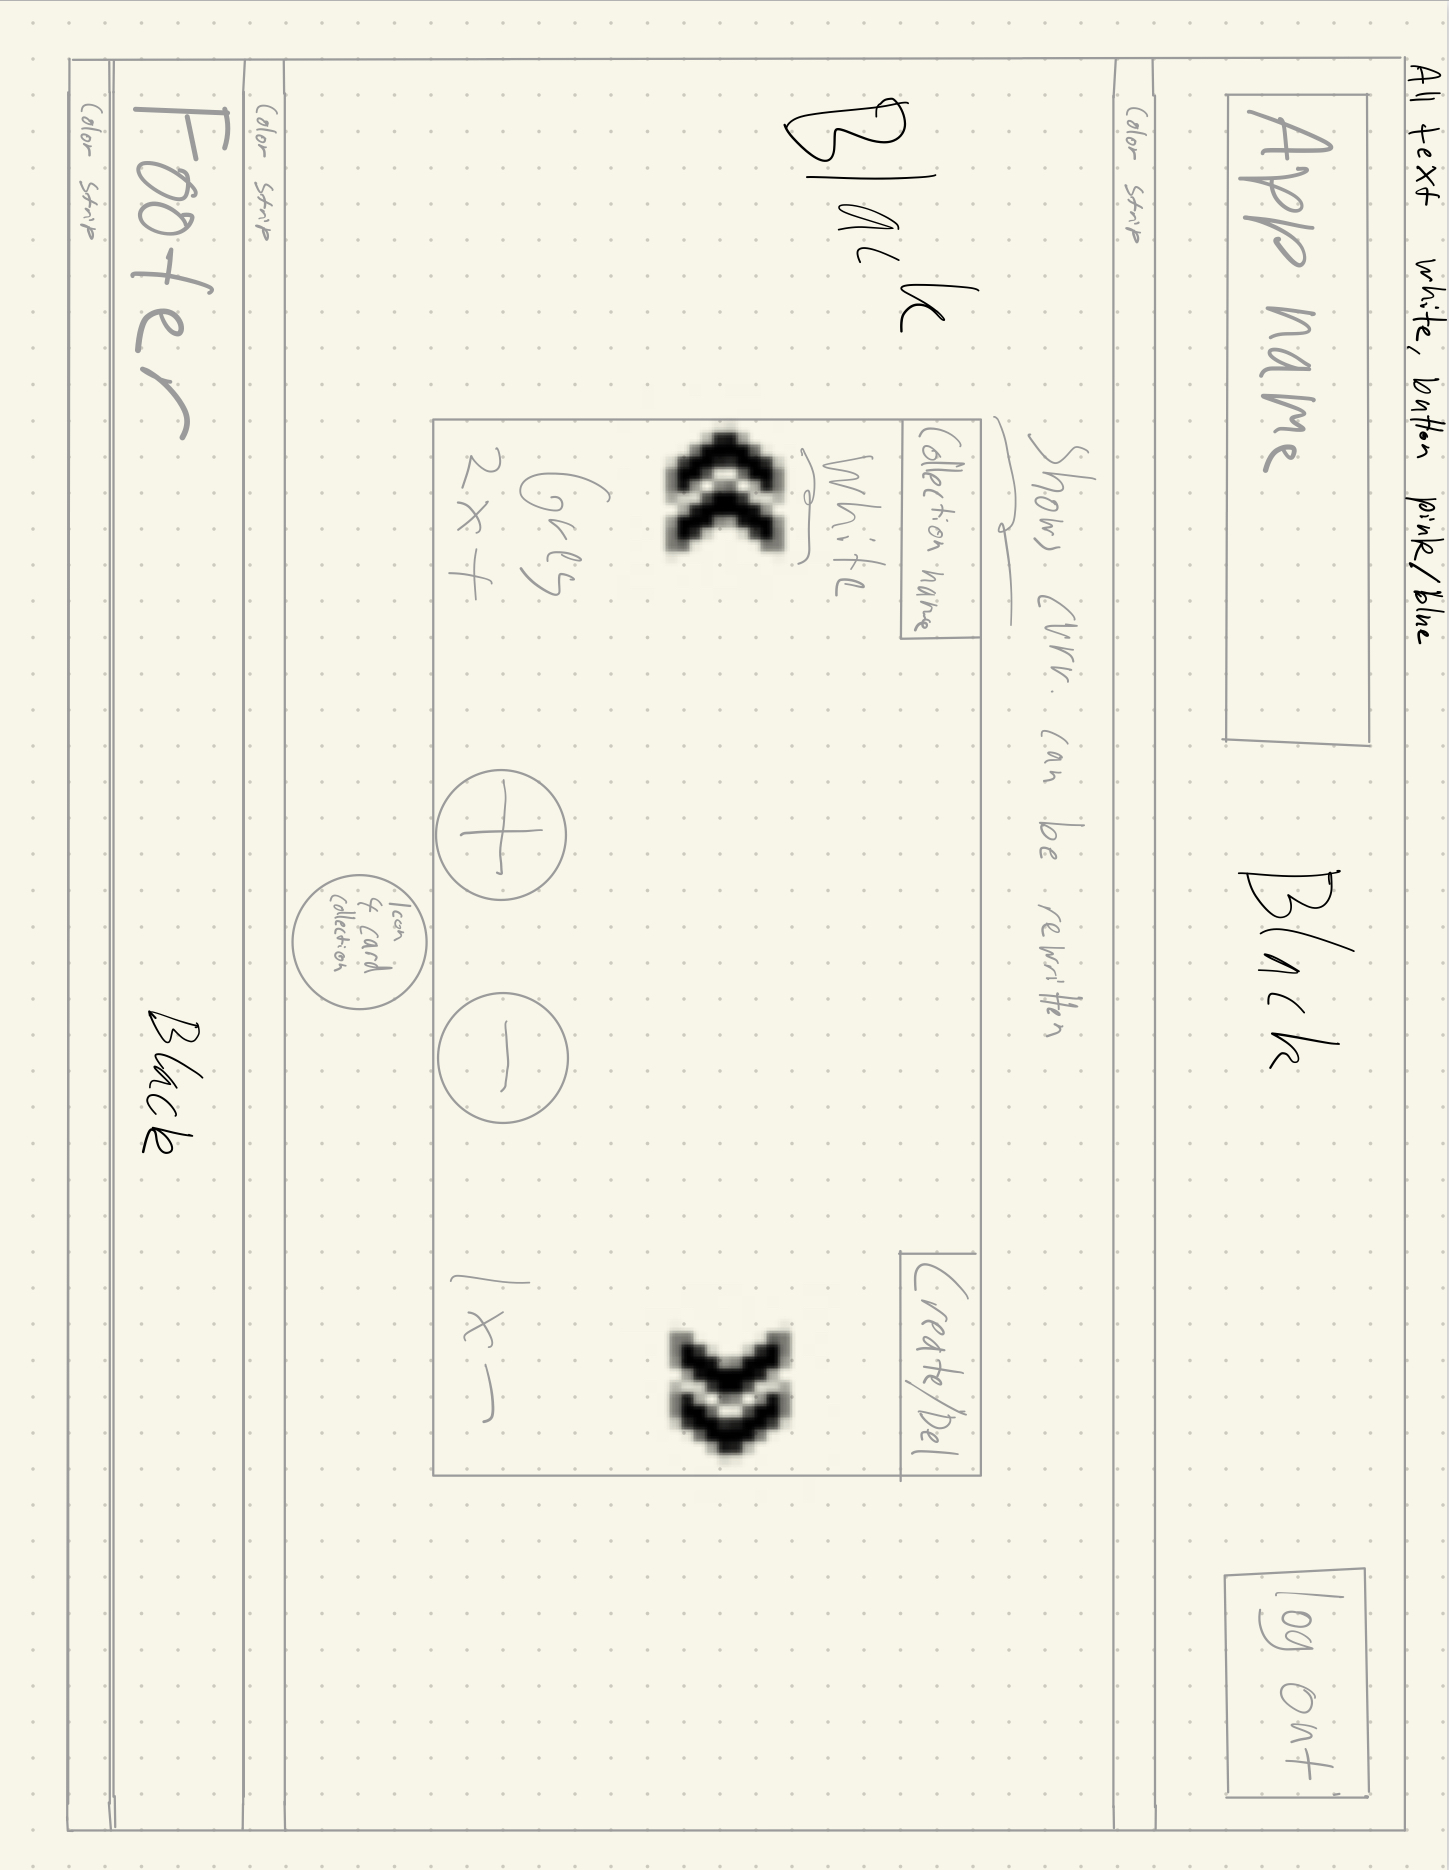 All text white, button pink/blue
App name
Black
log out
Color strip
Shows curr. can be rewritten
Collection name
Create/Del
White
Black
Grey
2x+
+
−
1x−
Icon
4 card
collection
Color strip
Footer
Black
Color strip